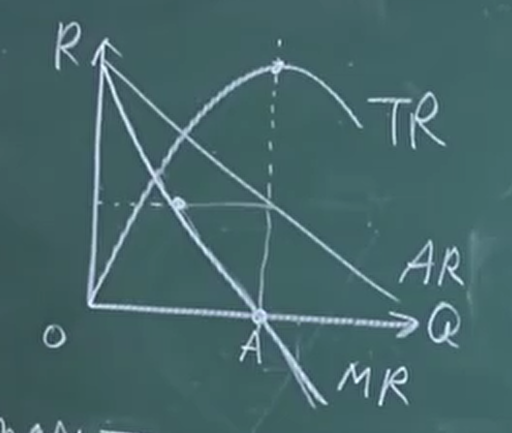 R
TR
AR
O
Q
A
MR